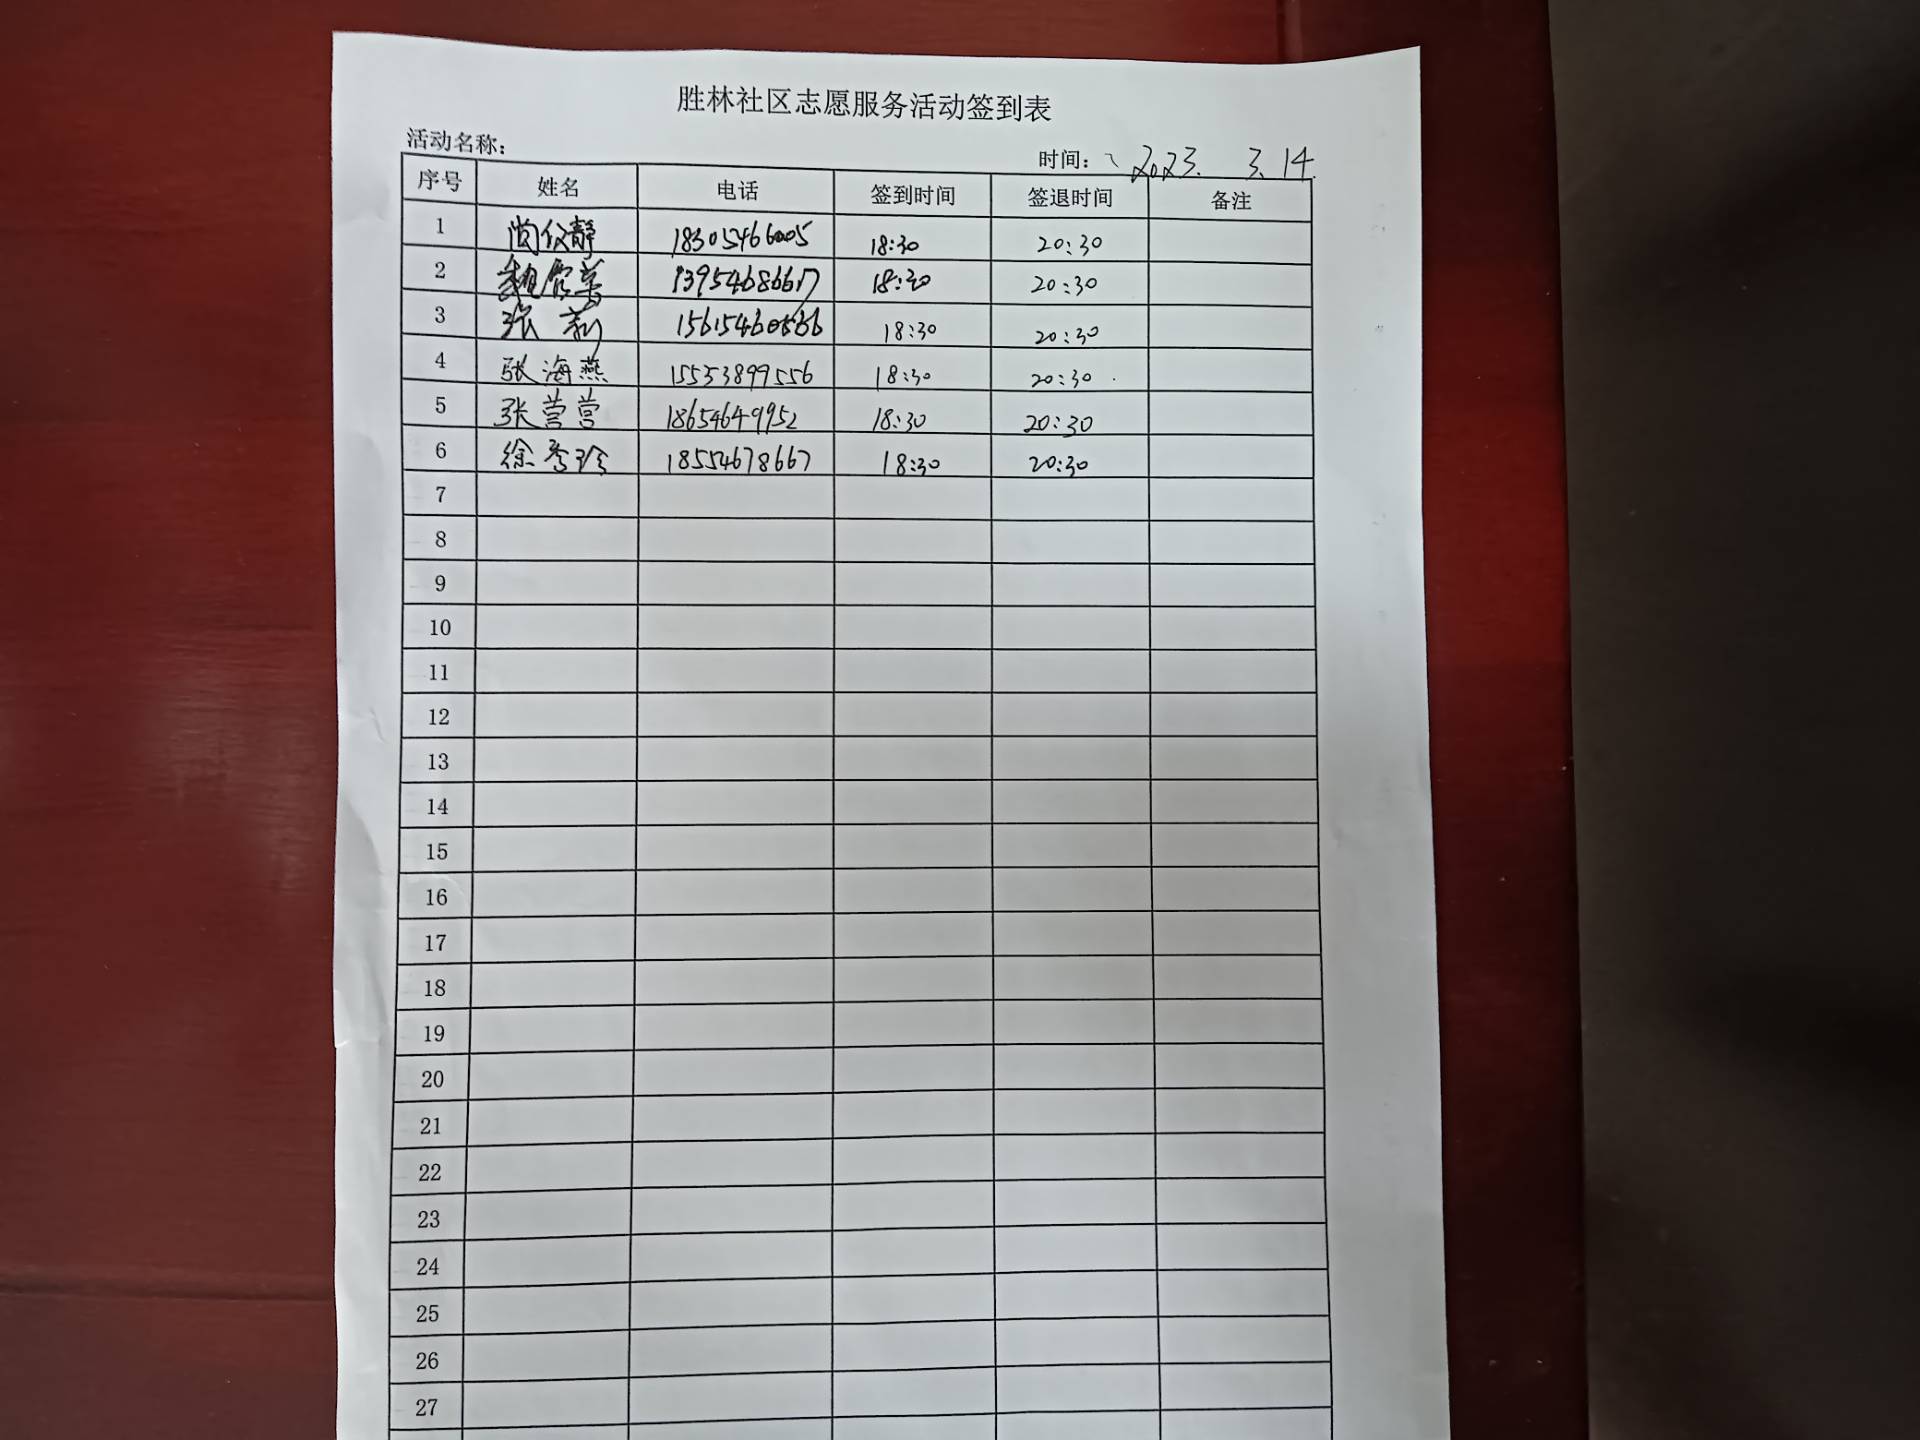 胜林社区志愿服务活动签到表
活动名称：
时间： 2023. 3. 14.
序号 姓名 电话 签到时间 签退时间 备注
1 尚仪静 18305466005 18:30 20:30
2 13954686617 18:30 20:30
3 张莉 18:30 20:30
4 张海燕 15553899556 18:30 20:30
5 张营营 18654649952 18:30 20:30
6 徐秀珍 18554678667 18:30 20:30
7
8
9
10
11
12
13
14
15
16
17
18
19
20
21
22
23
24
25
26
27